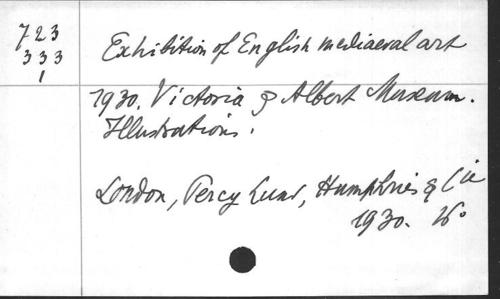 723
333
1
Exhibition of English mediaeval art
1930. Victoria & Albert Museum.
Illustrations.
London, Percy Lund, Humphries & Cie
1930. 16°